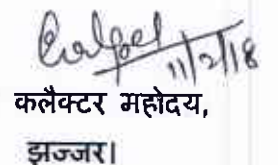 11/2/18
कलैक्टर महोदय,
झज्जर।